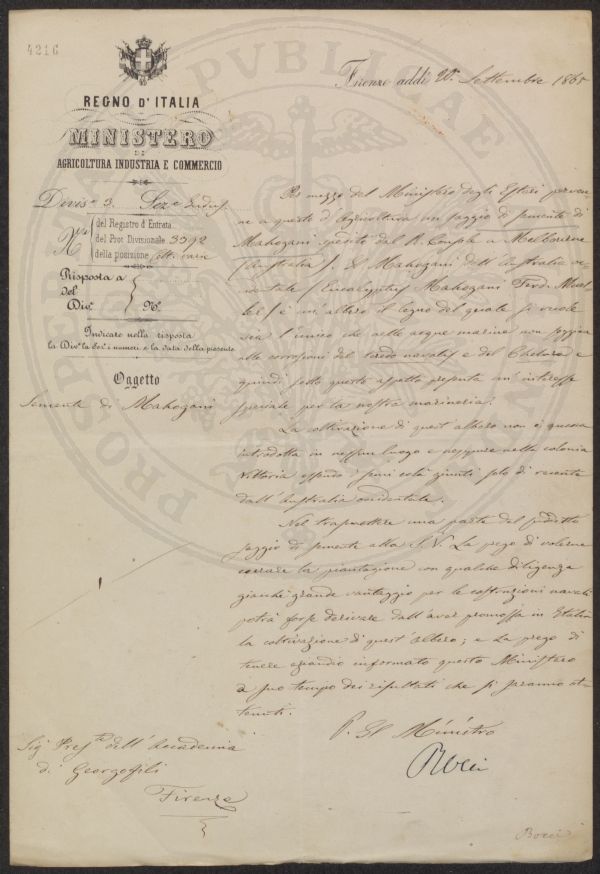 4216
REGNO D'ITALIA
MINISTERO
DI
AGRICOLTURA INDUSTRIA E COMMERCIO
Firenze addì 20 Settembre 1865
Divisne 3. Seze
N.ri
del Registro d'Entrata
del Prot. Divisionale 3392
della posizione
Risposta a
del
Div.e N.o
Indicare nella risposta
la Div.e la Sez.e i numeri e la data della presente
Oggetto
Semente di Mahogani
Per mezzo del Ministero degli Esteri perven
ne a questo di Agricoltura un saggio di semente di
Mahogani spedito dal R. Console a Melbourne
(Australia). Il Mahogani dell'Australia oc-
cidentale (Eucalyptus Mahogani Ferd. Muel
ler) è un'albero il legno del quale si vuole
sia l'unico che nelle acque marine non soggia
alle corrosioni del teredo navalis e del Chelura e
quindi sotto questo aspetto presenta un'interesse
speciale per la nostra marineria.
La coltivazione di quest'albero non è ancora
introdotta in nessun luogo e neppure nella colonia
Vittoria essendo i semi colà giunti solo di recente
dall'Australia occidentale.
Nel trasmettere una parte del suddetto
saggio di semente alla S. V. La prego di volerne
curare la piantagione con qualche diligenza
giacchè grande vantaggio per le costruzioni navali
potrà forse derivare dall'aver promossa in Italia
la coltivazione di quest'albero; e La prego di
tenere eziandio informato questo Ministero
a suo tempo dei risultati che si saranno ot-
tenuti.
P. Il Ministro
Bocci
Sig. Preste dell'Accademia
di Georgofili
Firenze
Bocci
PROSPERITATI PVBLICAE